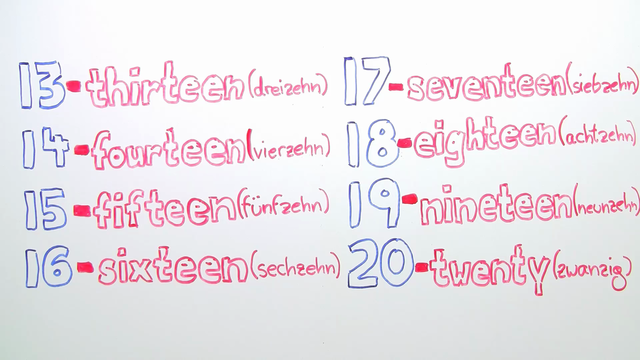 13-thirteen (dreizehn)
14-fourteen (vierzehn)
15-fifteen (fünfzehn)
16-sixteen (sechzehn)
17-seventeen (siebzehn)
18-eighteen (achtzehn)
19-nineteen (neunzehn)
20-twenty (zwanzig)